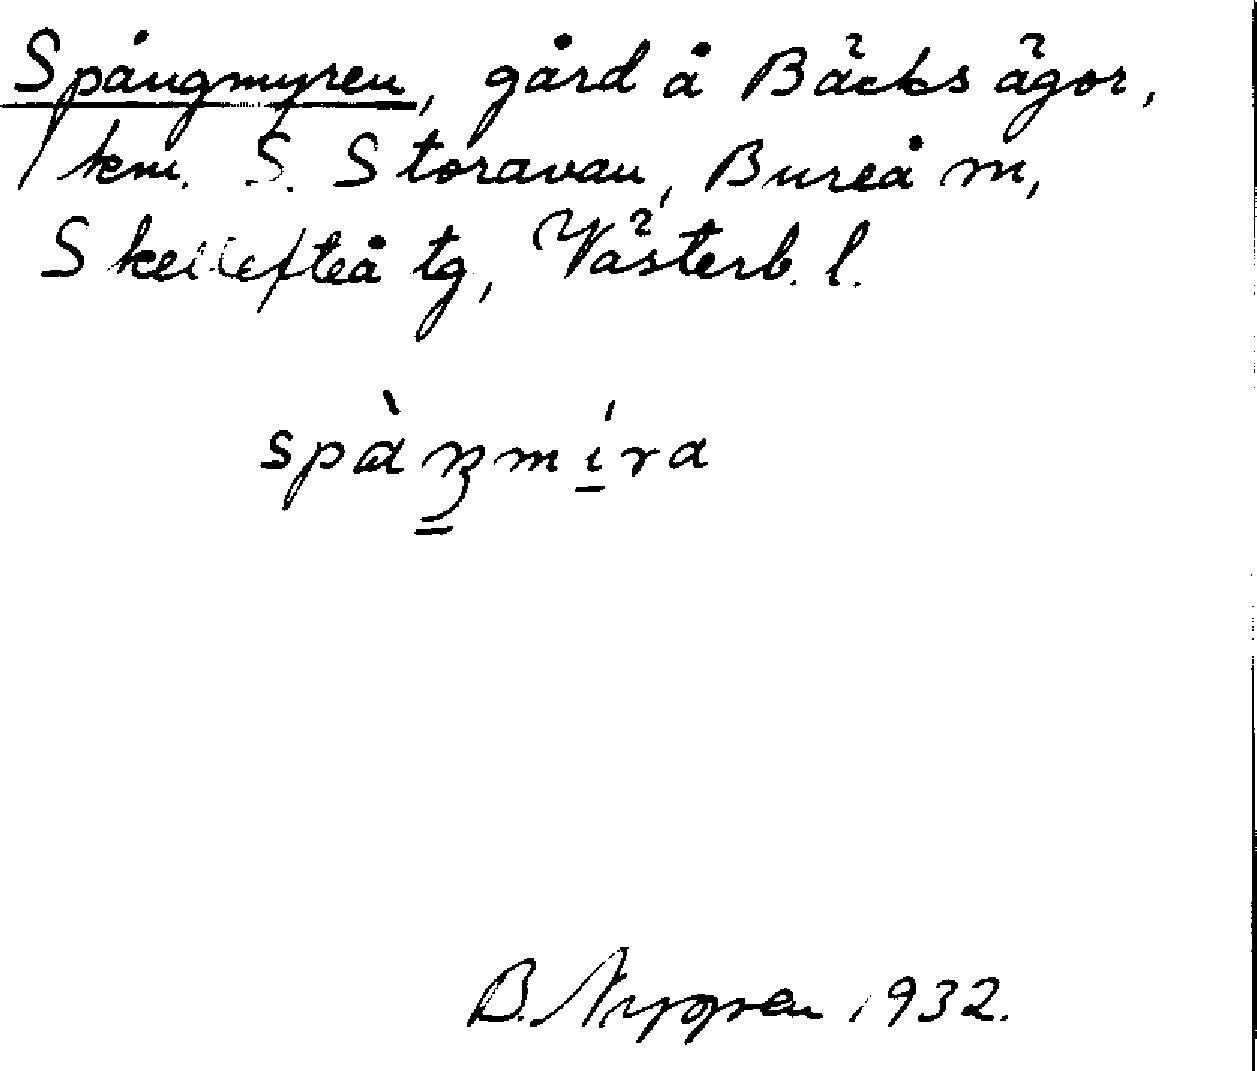 Spångmyren, gård å Bäcks ägor,
1 km. S. Storavan, Bureå m,
Skellefteå tg, Västerb. l.
B. Nygren 1932.